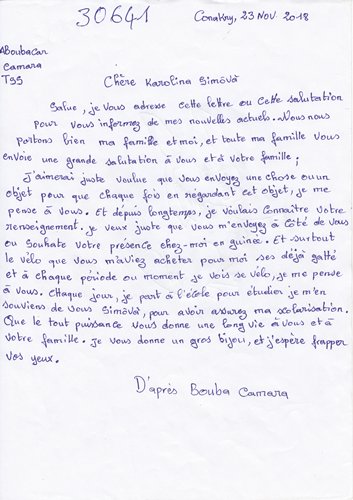 30641
Conakry, 23 NOV 2018
Aboubacar
Camara
TS5
Chère Karolina Simôvà
Salue, je vous adresse cette lettre ou cette salutation
pour vous informez de mes nouvelles actuels. Nous nous
portons bien ma famille et moi, et toute ma famille vous
envoie une grande salutation à vous et à votre famille;
J'aimerai juste voulue que vous envoyez une chose ou un
objet pour que chaque fois en regardant cet objet, je me
pense à vous. Et depuis longtemps, je voulais connaître votre
renseignement. je veux juste que vous m'envoyez à côté de vous
ou souhate votre présence chez-moi en guinée. Et surtout
le vélo que vous m'aviez acheter pour moi ses déjà gatté
et à chaque période ou moment je vois se vélo, je me pense
à vous. Chaque jour, je part à l'école pour étudier je m'en
souviens de vous Simôvà, pour avoir assurez ma scolarisation.
Que le tout puissance vous donne une long vie à vous et à
votre famille. Je vous donne un gros bijou, et j'espère frapper
vos yeux.
D'après Bouba Camara